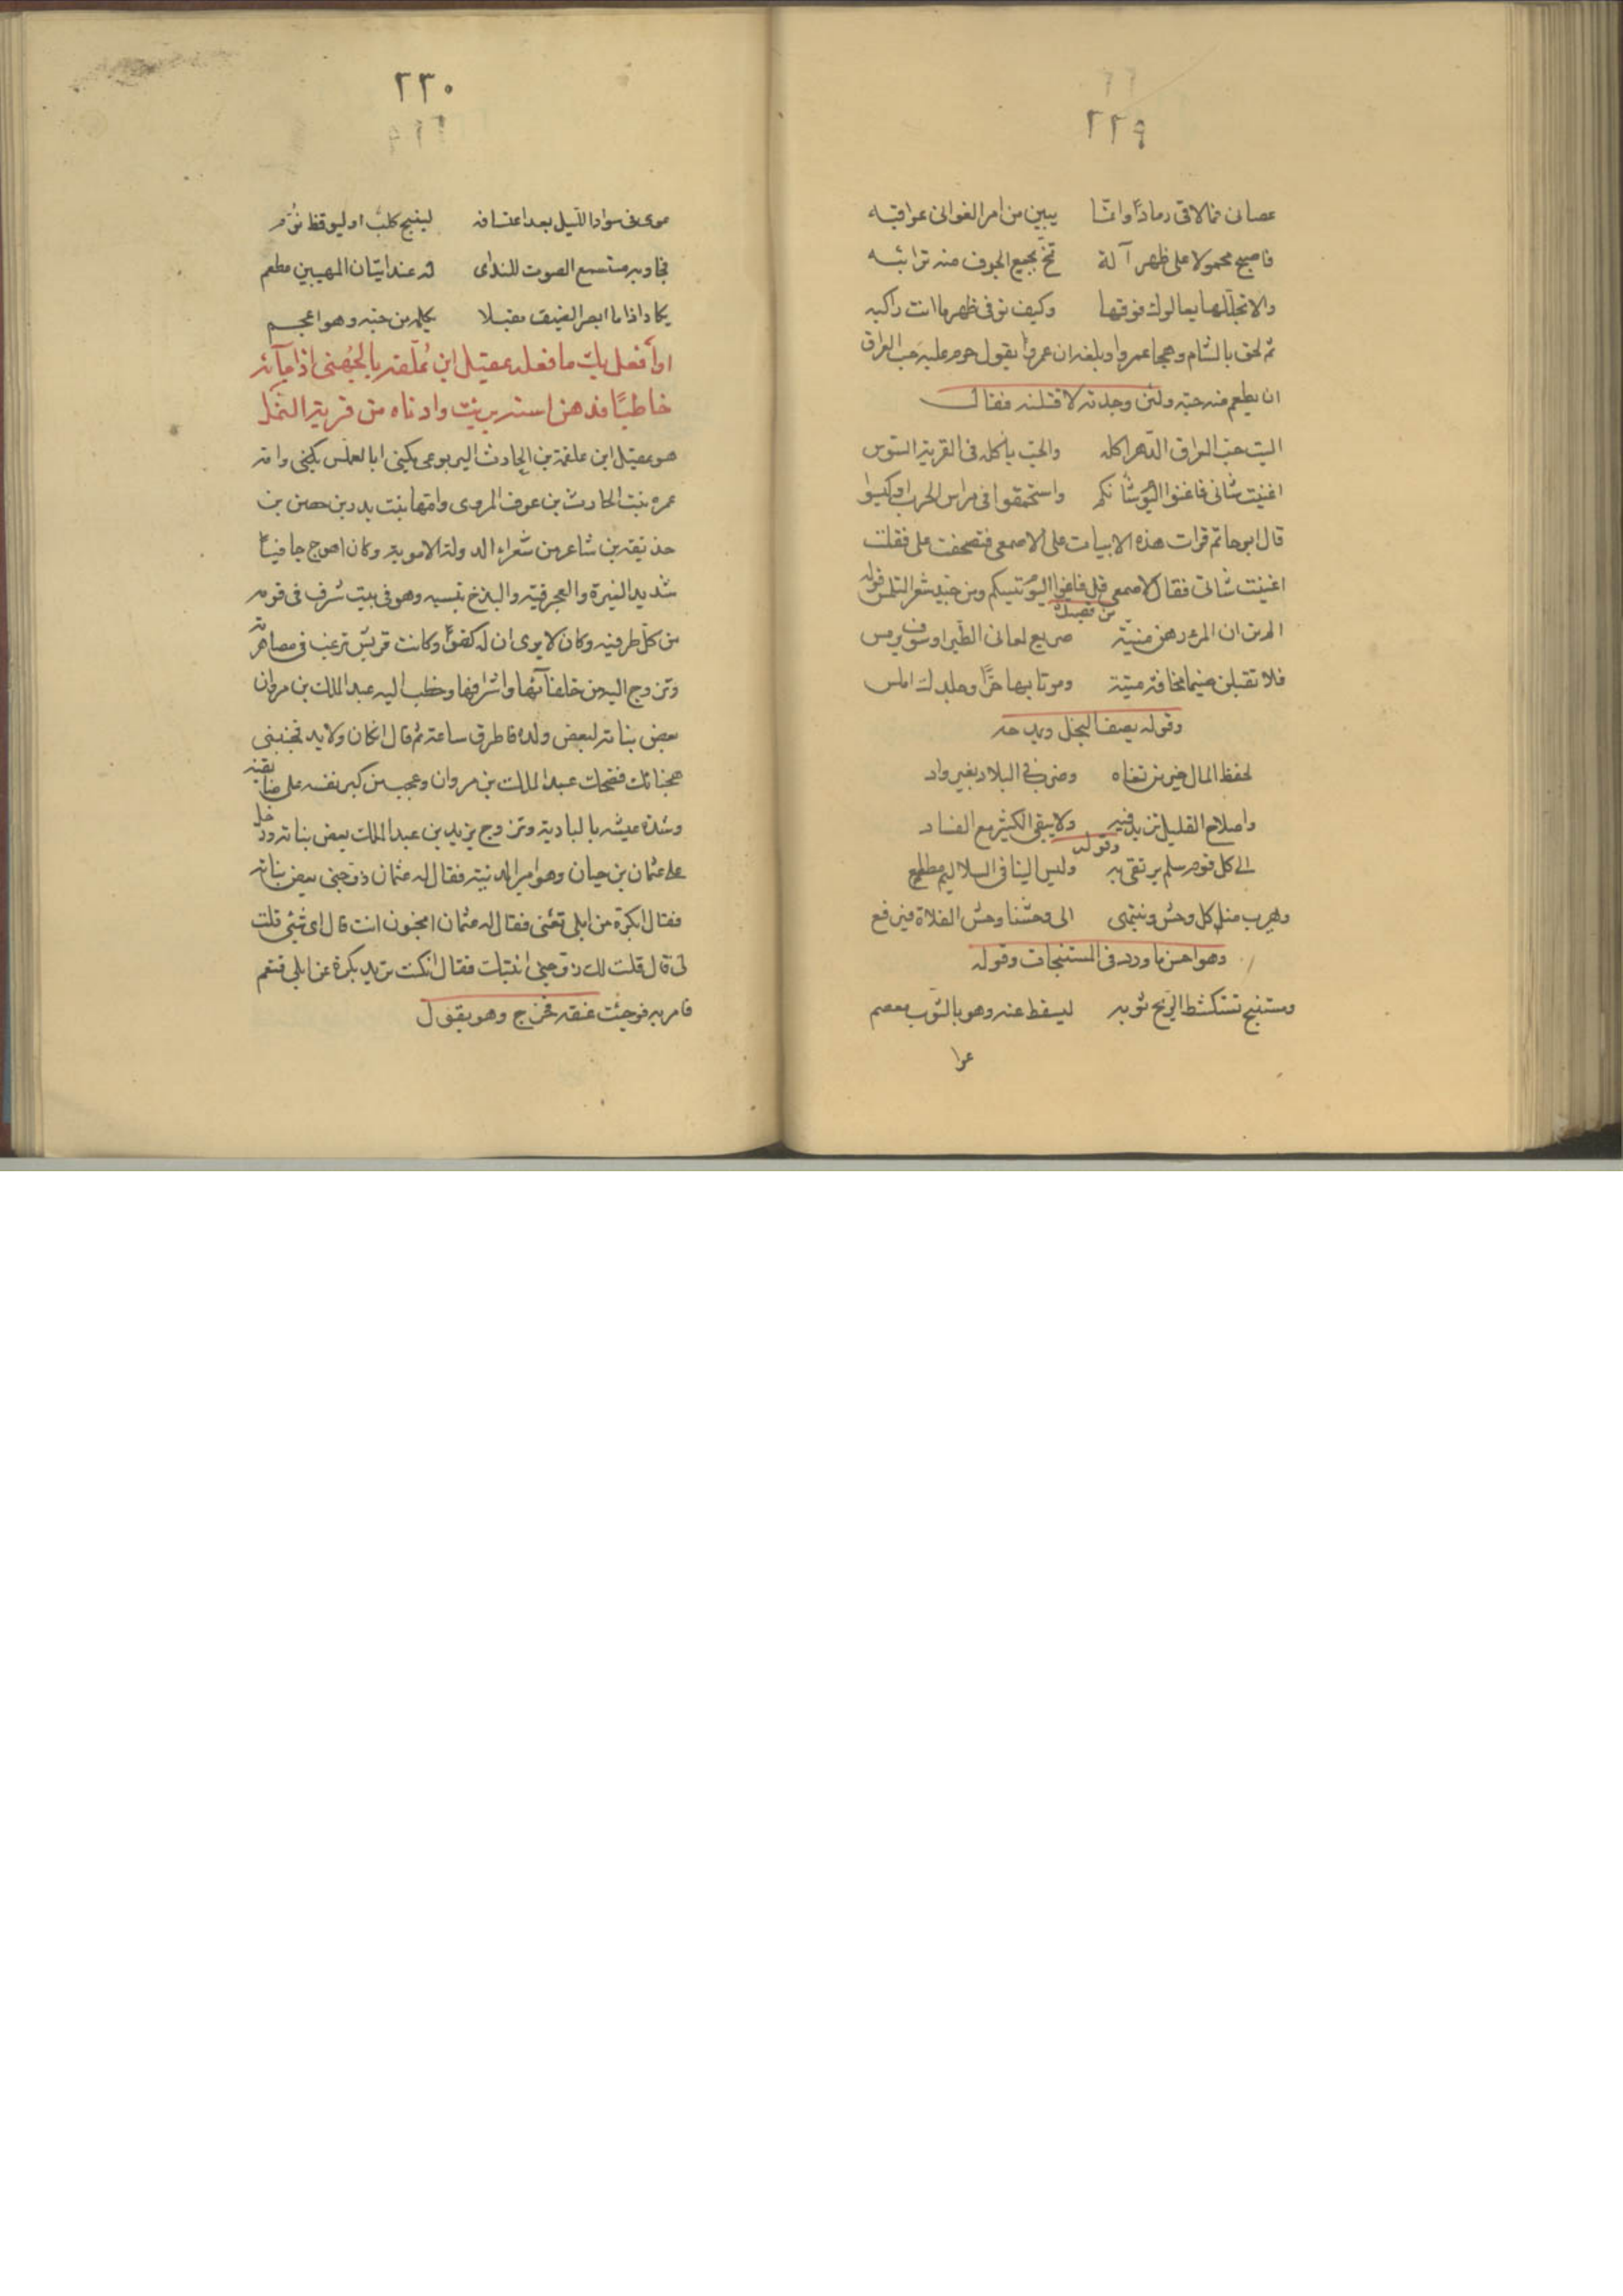 ٢٢٩
عصانى فما لاقى رمادًا وانما يبين من امر الغوانى عواقبه
فاصبح محمولا على ظهر آلة تمخ نجيع الجوف منه ترائبه
والا تجللها يعالوك فوقها وكيف توقى ظهر ما انت راكبه
ثم لحق بالشام وهجا عمروا وبلغه ان عمروا يقول حرم عليه حب العراق
ان يطعم منه حبة ولئن وجدته لاقتلنه فقال
اليت حب العراق الدهر اكله والحب ياكله فى القرية السوس
اغنيت شانى فاغنوا اليوم شانكم واستحمقوا فى مراس الحرب او كيسوا
قال ابو حاتم قرات هذه الابيات على الاصمعى فتصحفت على فقلت
اغنيت شاتى فقال الاصمعى قل فاغنوا اليوم تيسكم ومن جيد شعر المتلمس قوله
من قصيدة
الم تر ان المرء رهن منيّة صريع لعافى الطير او سوف يرمس
فلا تقبلن ضيما مخافة ميتة وموتا بها حرًّا وجلدك املس
وقوله يصف البخل ويمدحه
لحفظ المال خير من تفاه وضرب فى البلاد بغير زاد
واصلاح القليل يزيد فيه ولا يبقى الكثير مع الفساد
وقوله
الى كل قوم سلم يرتقى به وليس الينا فى السلاليم مطلع
ويهرب منا كل وحش وينتمى الى وحشنا وحش الفلاة فيرتع
وهو احسن ما ورد فى المستنبحات وقوله
ومستنبح تستكشط الريح ثوبه ليسقط عنه وهو بالثوب معصم
عوا
٢٣٠
عوى فى سواد الليل بعد اعتسافه لينبح كلب او ليوقظ نُوّم
فجاوبه مستسمع الصوت للندى له عند اتيان المهبين مطعم
يكاد اذا ما ابصر الضيف مقبلا يكلمه من حبه وهو اعجم
او أفعل بك ما فعله عقيل ابن عُلّفة بالجُهنى اذ جآئه
خاطبًا فدهن استه بزيت وادناه من قرية النمل
هو عقيل ابن علفة بن الحارث اليربوعى يكنى ابا العملس يكنى وامه
عمره بنت الحارث بن عوف المروى وامها بنت بدر بن حصن بن
حذيفة بن شاعر من شعراء الدولة الاموية وكان اهوج جافيًا
شديد الغيرة والعجرفية والبذخ بنسبه وهو فى بيت شرف فى قومه
من كل طرفيه وكان لا يرى ان له كفوًا وكانت قريش ترغب فى مصاهرته
وتزوج اليه من خلفآئها واشرافها وخطب اليه عبد الملك بن مروان
بعض بناته لبعض ولده فاطرق ساعة ثم قال انكان ولا بد تجنبنى
هجنائك فضحك عبد الملك بن مروان وعجب من كبر نفسه على ضايقته
وشدة عيشه بالبادية وتزوج يزيد بن عبد الملك بعض بناته ودخل
على عثمان بن حيان وهو امير المدينة فقال له عثمان زوجنى بعض بناتك
فقال ابكرة من ابلى تعنى فقال له عثمان امجنون انت قال اى شئى قلت
لى قال قلت لك زوجنى ابنتك فقال ان كنت تريد بكرة من ابلى فنعم
فامر به فوجئت عنقه فخرج وهو يقول